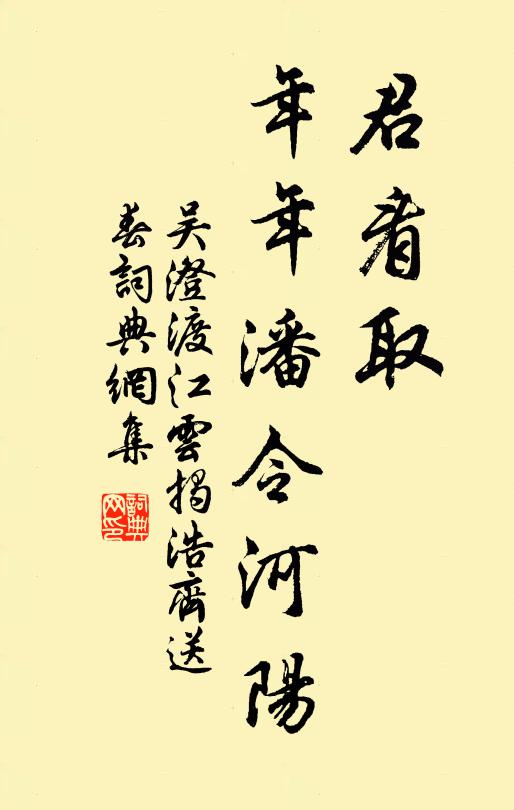 君看取
年年潘令河陽
吴澄渡江雲揭浩齊送
春詞典網集
詞典网印